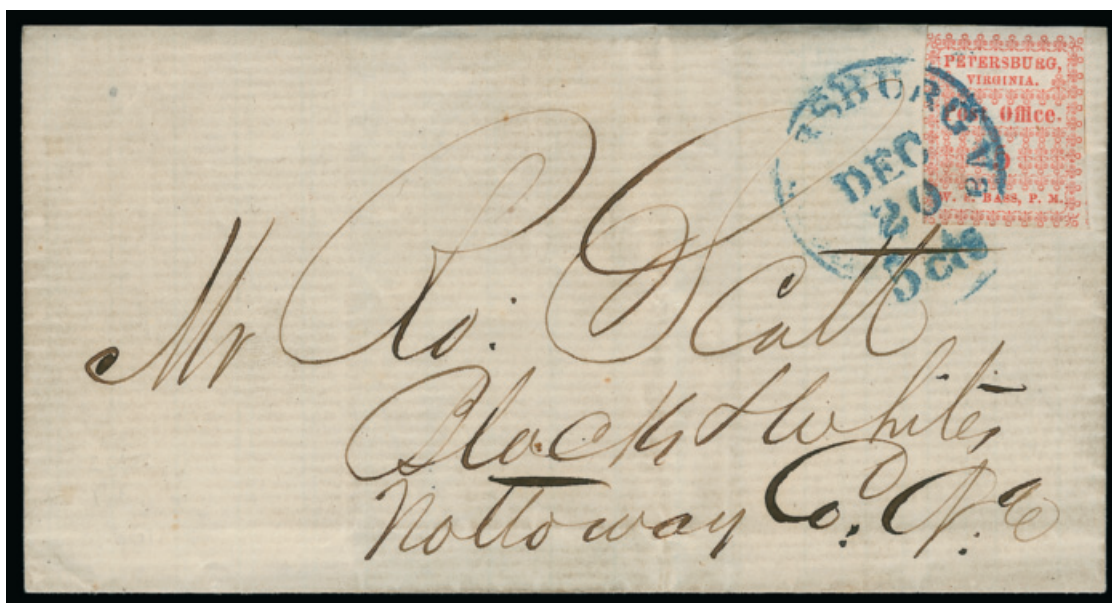 PETERSBURG,
VIRGINIA.
Post Office.
W. E. BASS, P. M.
RSBURG Va
DEC
20
5cts
Mr Ro. Scott
Blacks & Whites
Nottoway Co. Va